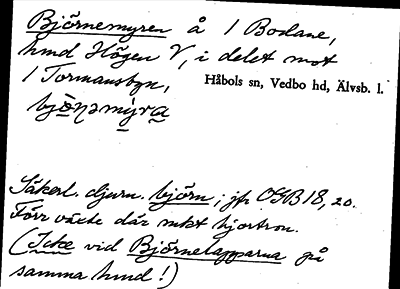 Björnemyren å 1 Bodane,
hmd Högen V, i delet mot
1 Tormansbyn,
Håbols sn, Vedbo hd, Älvsb. l.
Säkerl. djurn. björn; jfr OGB 18, 20.
Förr växte där mkt hjortron.
(Icke vid Björnelapparna på
samma hmd!)